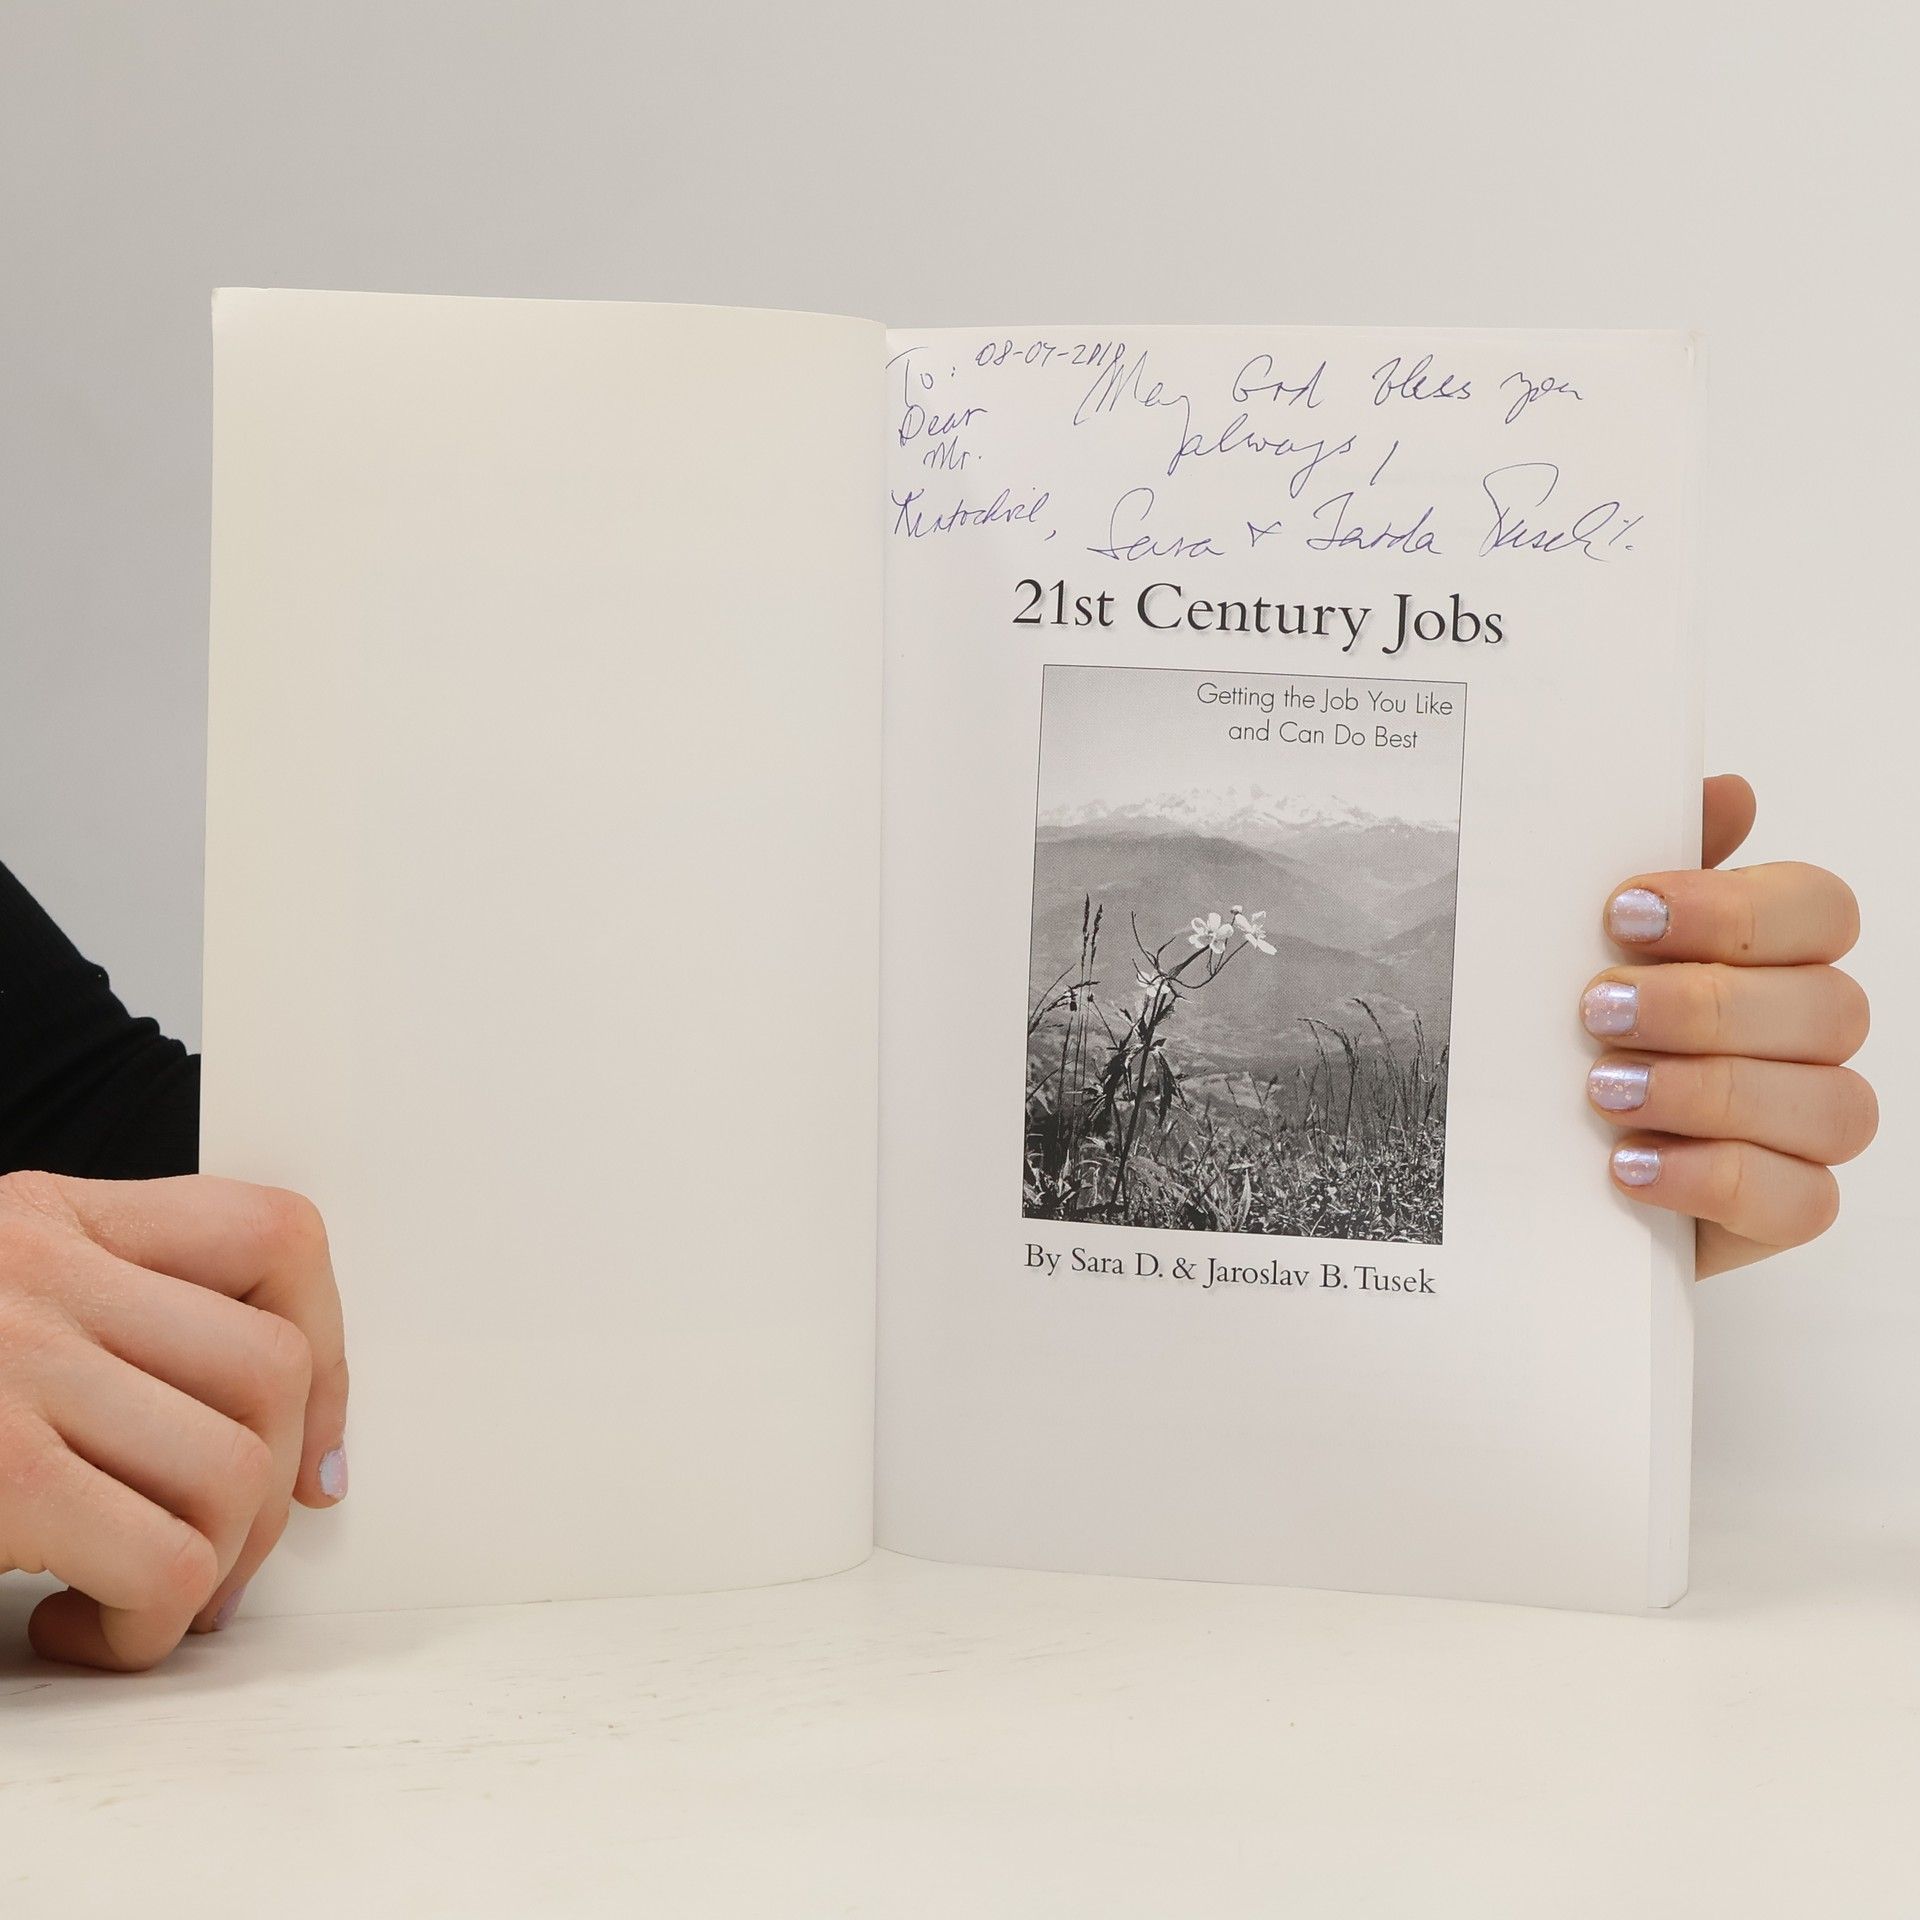 To: 08-07-2010
Dear
Mr.
Kratochvil,
May God bless you
always,
Sara & Jarda Tusek
21st Century Jobs
Getting the Job You Like
and Can Do Best
By Sara D. & Jaroslav B. Tusek